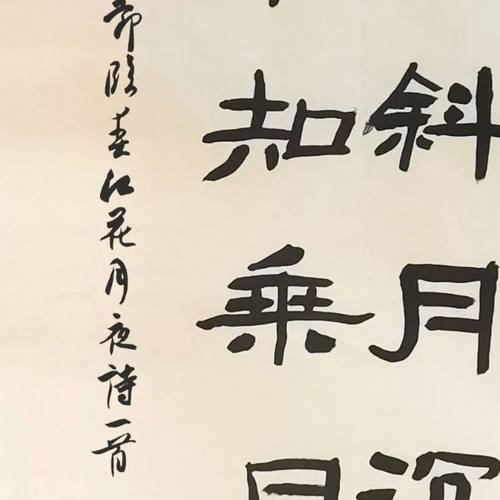 斜月沉
知乘月
臨春江花月夜詩一首